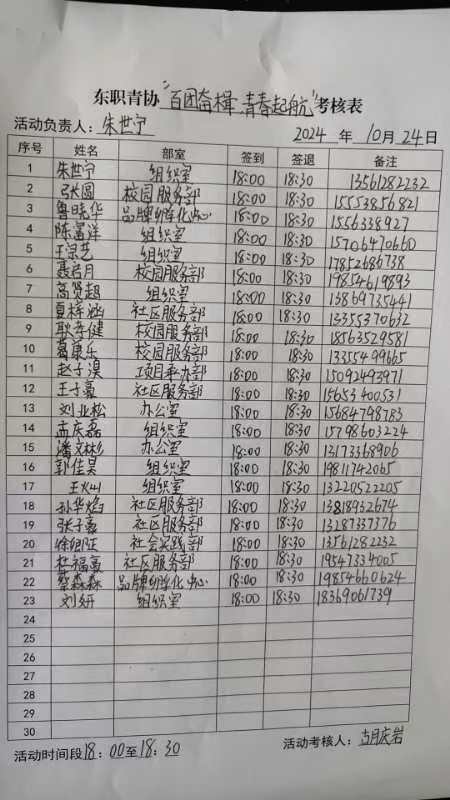 东职青协"百团奋楫 青春起航"考核表
活动负责人：朱世宁 2024 年 10月 24日
序号 姓名 部室 签到 签退 备注
1 朱世宁 组织室 18:00 18:30 13561282232
2 张圆 校园服务部 18:00 18:30 15553856821
3 鲁晓华 品牌孵化中心 18:00 18:30 1556338927
4 陈富洋 组织室 18:00 18:30 15706470660
5 王宗艺 组织室 18:00 18:30 17852686738
6 聂若月 校园服务部 18:00 18:30 19854619893
7 高贤超 组织室 18:00 18:30 13869735441
8 夏梓涵 社区服务部 18:00 18:30 13355370632
9 耿孝健 校园服务部 18:00 18:30 18563529581
10 葛康乐 校园服务部 18:00 18:30 13355499665
11 赵子淏 项目承办部 18:00 18:30 15092493971
12 王子豪 社区服务部 18:00 18:30 15653400531
13 刘业松 办公室 18:00 18:30 15684798783
14 孟庆磊 组织室 18:00 18:30 15798603224
15 潘文彬 办公室 18:00 18:30 13173368906
16 郭佳昊 组织室 18:00 18:30 19811742065
17 王火山 组织室 18:00 18:30 13220522205
18 孙华焰 社区服务部 18:00 18:30 13818932674
19 张子豪 社区服务部 18:00 18:30 13287337376
20 徐 社会实践部 18:00 18:30 13561282232
21 杜福高 社区服务部 18:00 18:30 19547334005
22 蔡森森 品牌孵化中心 18:00 18:30 19854660624
23 刘妍 组织室 18:00 18:30 18369061739
24
25
26
27
28
29
30
活动时间段18：00至18：30 活动考核人：胡庆岩